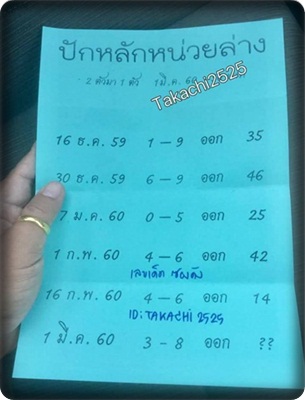 ปักหลักหน่วยล่าง
2 ตัวมา 1 ตัว 1 มี.ค. 60
Takachi2525
16 ธ.ค. 59 1 – 9 ออก 35
30 ธ.ค. 59 6 – 9 ออก 46
7 ม.ค. 60 0 – 5 ออก 25
1 ก.พ. 60 4 – 6 ออก 42
เลขเด็ด เซผดัง
16 ก.พ. 60 4 – 6 ออก 14
ID: TAKACHI 2525
1 มี.ค. 60 3 – 8 ออก ??